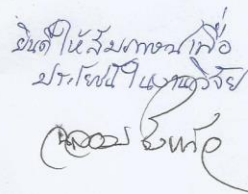 ยินดีให้สัมภาษณ์เพื่อ
ประโยชน์ในงานวิจัย